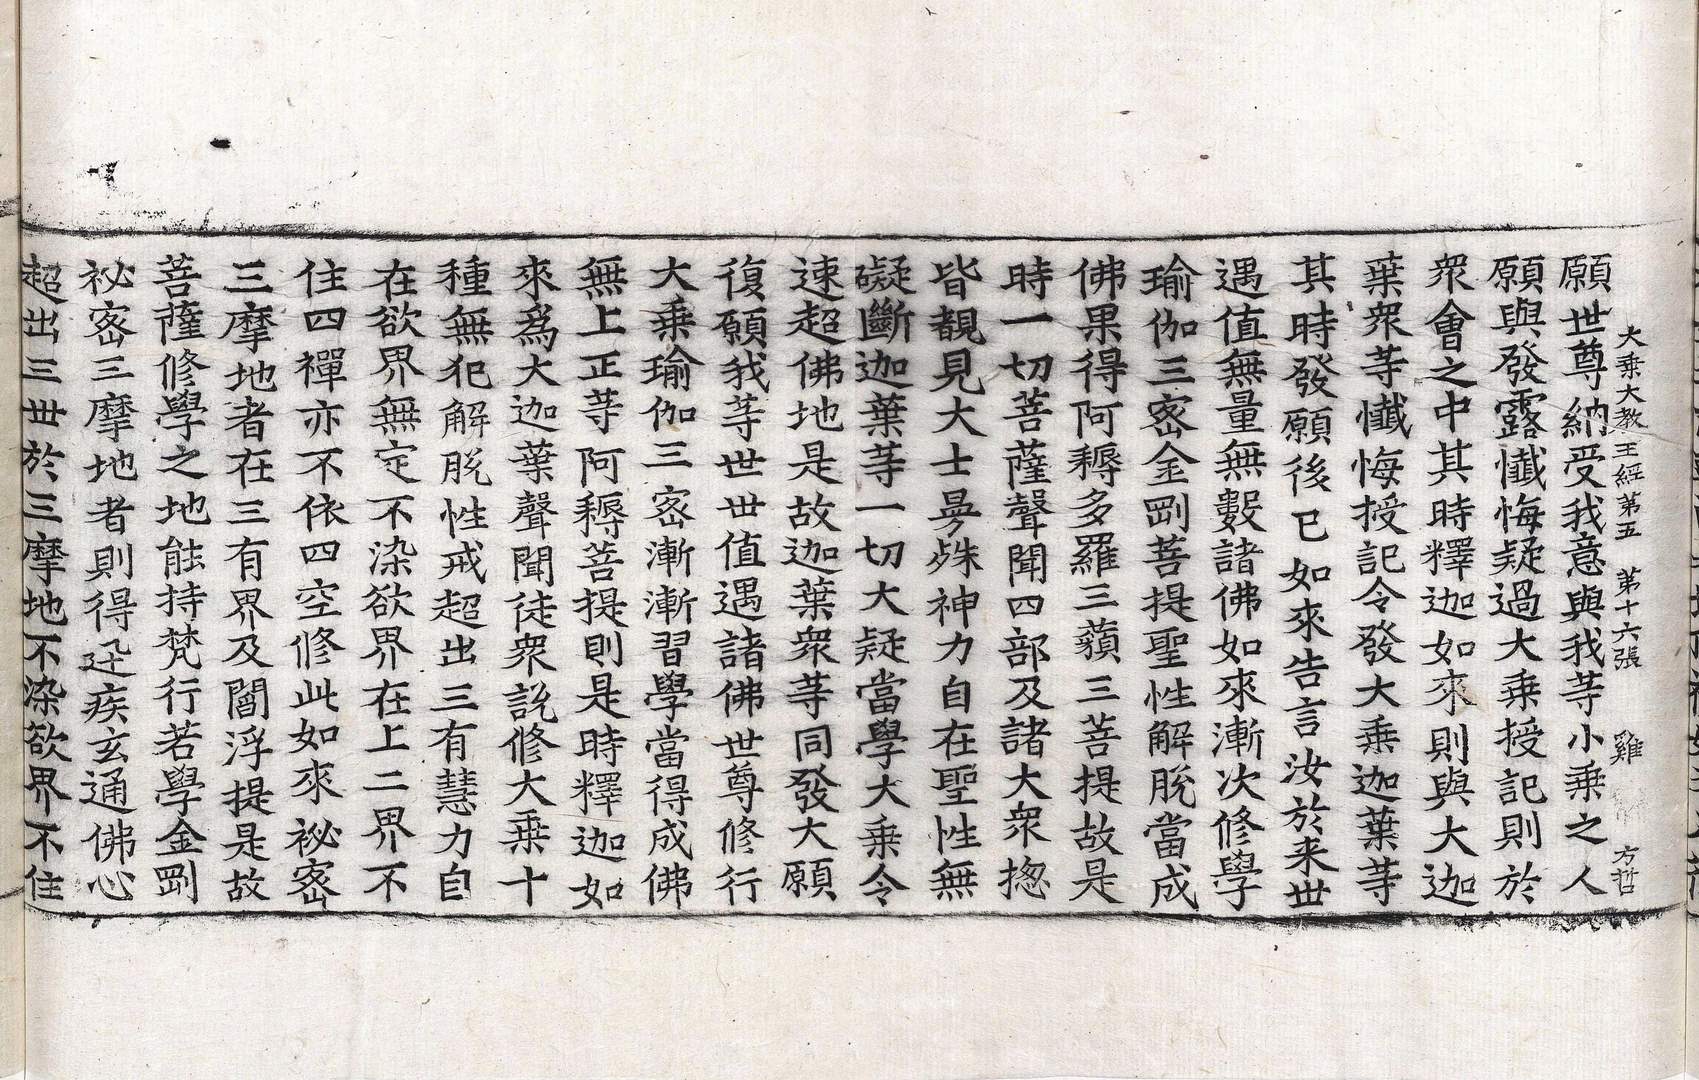 大乗大教王經第五 第十六張 雞 方哲
願世尊納受我意與我䓁小乗之人
願與發露懺悔疑過大乗授記則於
衆會之中其時釋迦如來則與大迦
葉衆䓁懺悔授記令發大乗迦葉䓁
其時發願後已如來告言汝於来世
遇值無量無數諸佛如來漸次修學
瑜伽三宻金剛菩提聖性解脫當成
佛果得阿耨多羅三藐三菩提故是
時一切菩薩聲聞四部及諸大衆揔
皆覩見大士曼殊神力自在聖性無
礙斷迦葉䓁一切大疑當學大乗令
速超佛地是故迦葉衆䓁同發大願
復願我䓁世世值遇諸佛世尊修行
大乗瑜伽三宻漸漸習學當得成佛
無上正䓁阿耨菩提則是時釋迦如
來爲大迦葉聲聞徒衆説修大乗十
種無犯解脫性戒超出三有慧力自
在欲界無定不染欲界在上二界不
住四禪亦不依四空修此如來祕宻
三摩地者在三有界及閻浮提是故
菩薩修學之地能持梵行若學金剛
祕宻三摩地者則得迅疾玄通佛心
超出三世於三摩地不染欲界不住